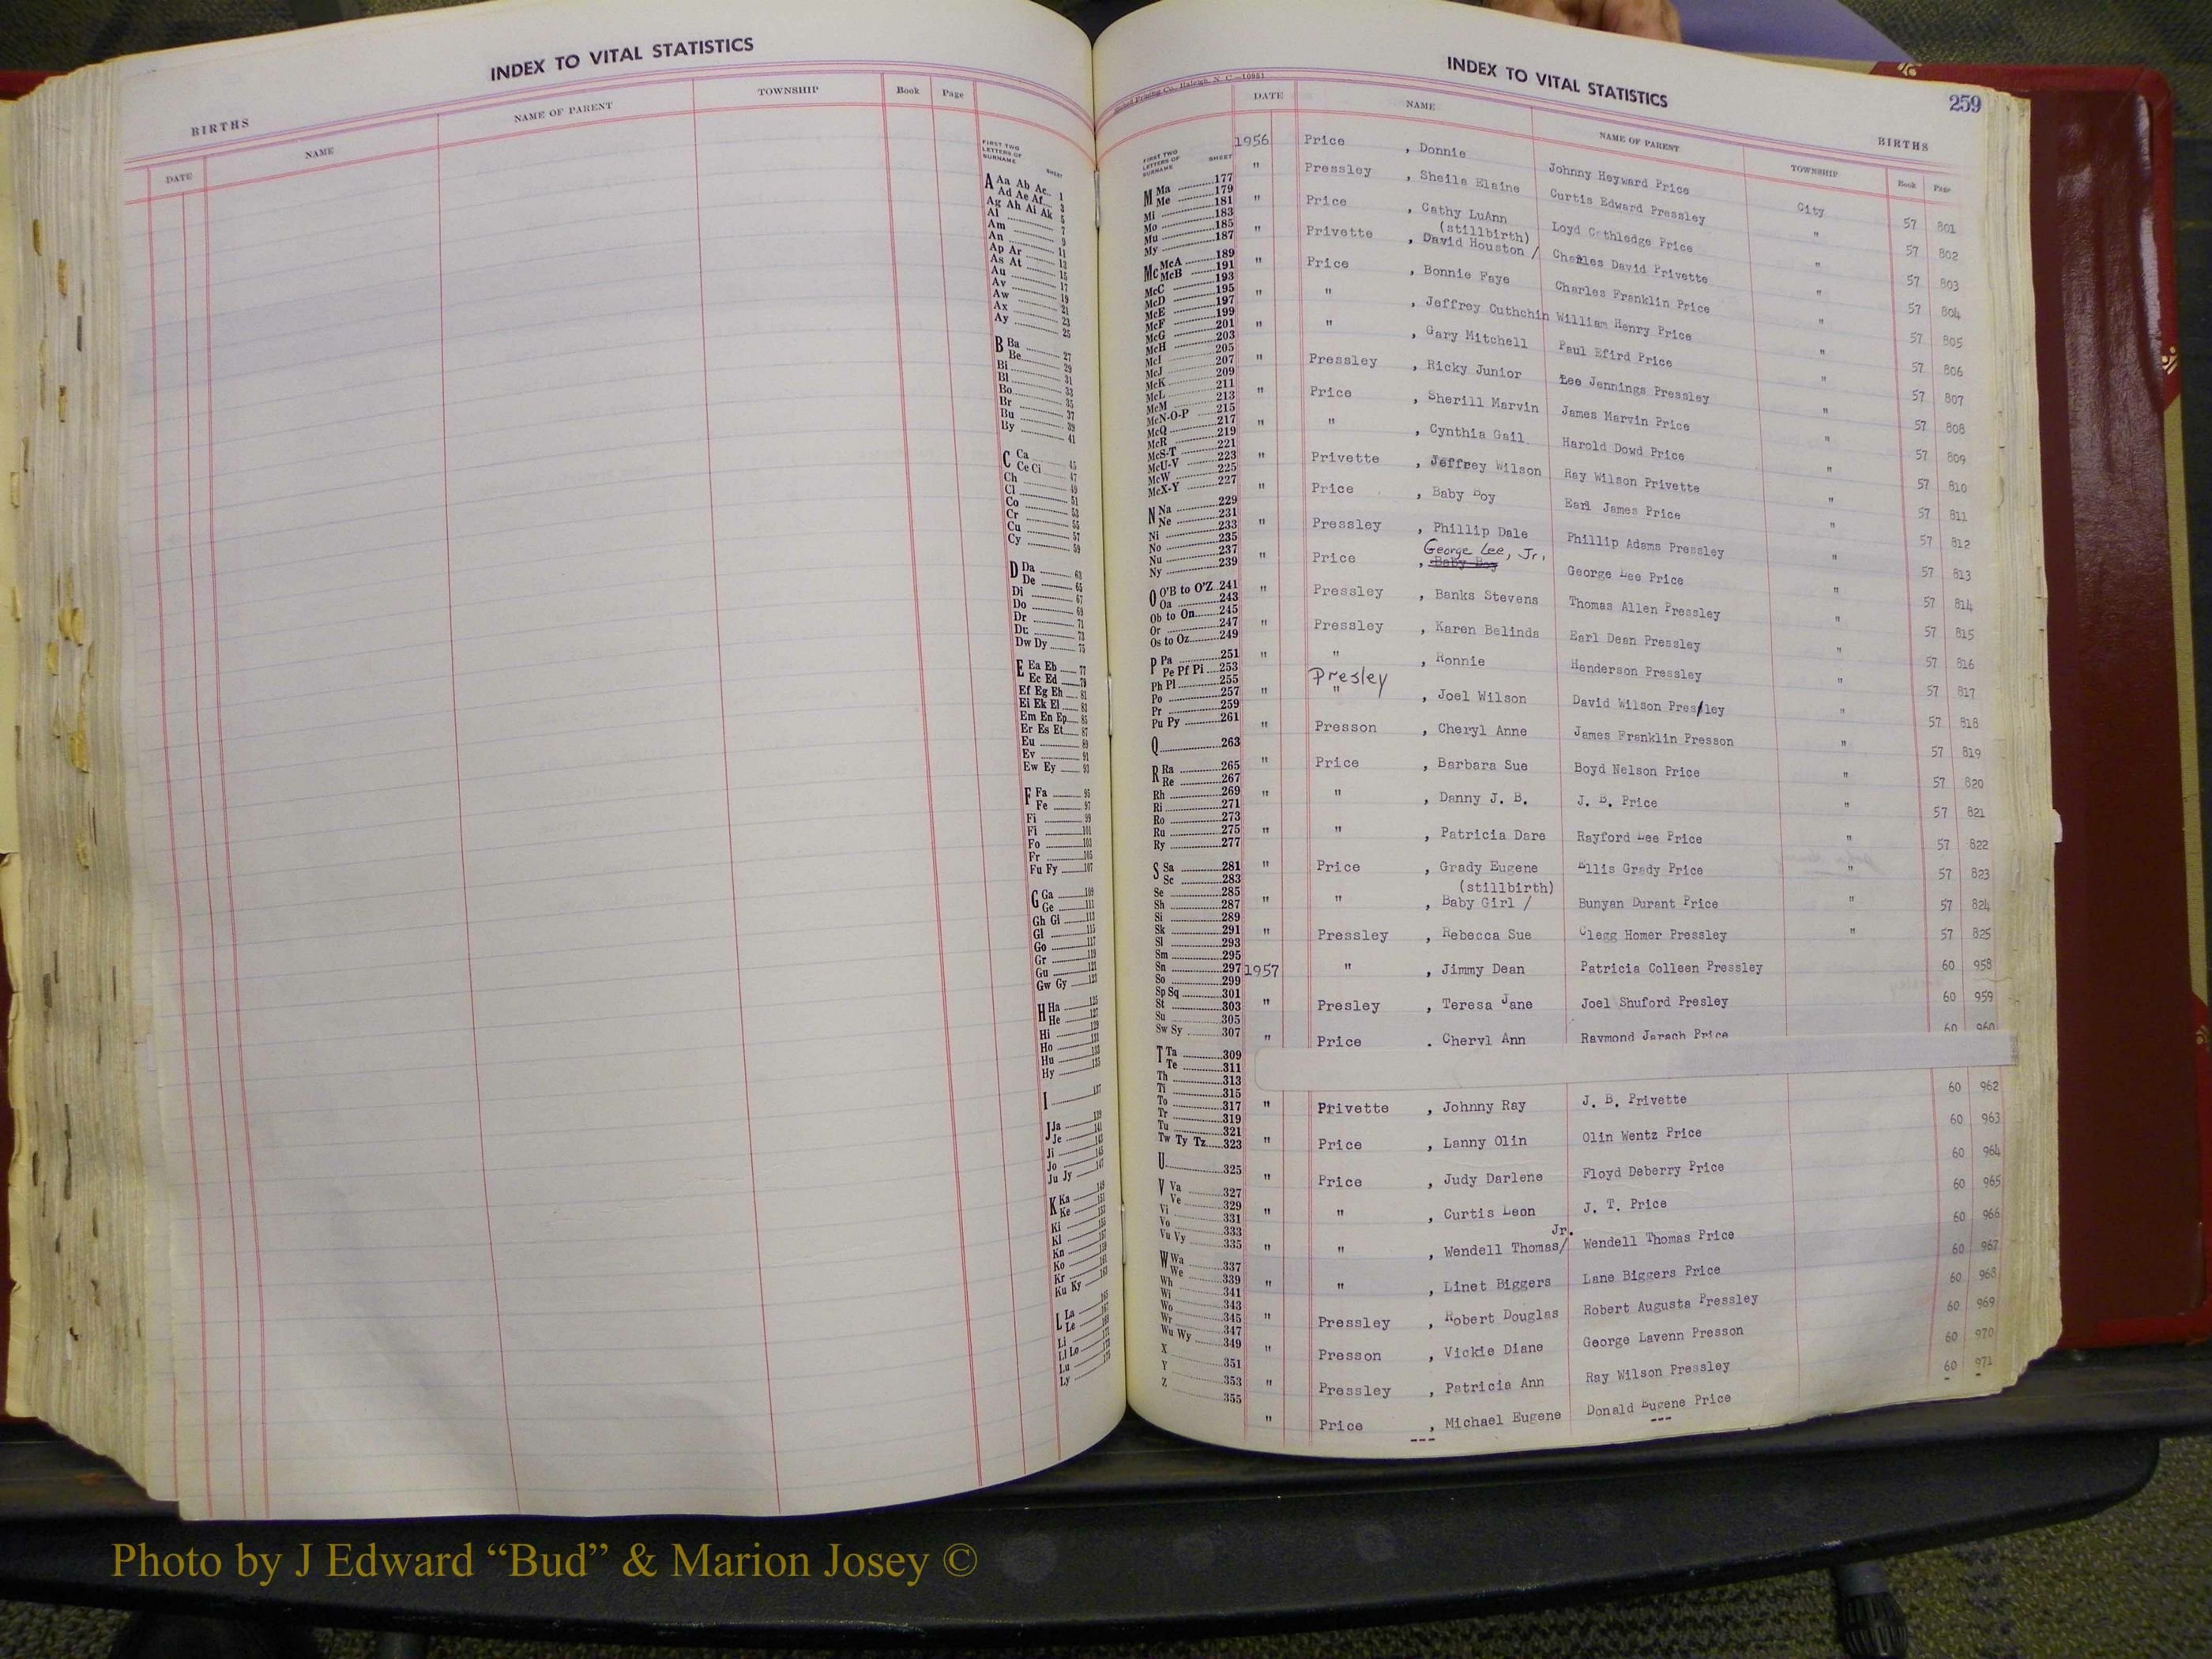 INDEX TO VITAL STATISTICS
BIRTHS
DATE NAME NAME OF PARENT TOWNSHIP Book Page
FIRST TWO LETTERS OF SURNAME SHEET
A Aa Ab Ac 1
Ad Ae Af 3
Ag Ah Ai Ak 5
Al 7
Am 9
An 11
Ap Ar 13
As At 15
Au 17
Av 19
Aw 21
Ax 23
Ay 25
B Ba 27
Be 29
Bi 31
Bl 33
Bo 35
Br 37
Bu 39
By 41
C Ca 45
Ce Ci 47
Ch 49
Cl 51
Co 53
Cr 55
Cu 57
Cy 59
D Da 63
De 65
Di 67
Do 69
Dr 71
Du 73
Dw Dy 75
E Ea Eb 77
Ec Ed 79
Ef Eg Eh 81
Ei Ek El 83
Em En Ep 85
Er Es Et 87
Eu 89
Ev 91
Ew Ey 93
F Fa 95
Fe 97
Fi 99
Fl 101
Fo 103
Fr 105
Fu Fy 107
G Ga 109
Ge 111
Gh Gi 113
Gl 115
Go 117
Gr 119
Gu 121
Gw Gy 123
H Ha 125
He 127
Hi 129
Ho 131
Hu 133
Hy 135
I 137
J Ja 139
Je 141
Ji 143
Jo 145
Ju Jy 147
K Ka 149
Ke 151
Ki 153
Kl 155
Kn 157
Ko 159
Kr 161
Ku Ky 163
L La 165
Le 167
Li
Ll Lo
Lu
Ly
INDEX TO VITAL STATISTICS
259
BIRTHS
DATE NAME NAME OF PARENT TOWNSHIP Book Page
FIRST TWO LETTERS OF SURNAME SHEET
M Ma 177
Me 179
Mi 181
Mo 183
Mu 185
My 187
Mc McA 189
McB 191
McC 193
McD 195
McE 197
McF 199
McG 201
McH 203
McI 205
McJ 207
McK 209
McL 211
McM 213
McN-O-P 215
McQ 217
McR 219
McS-T 221
McU-V 223
McW 225
McX-Y 227
N Na 229
Ne 231
Ni 233
No 235
Nu 237
Ny 239
O O'B to O'Z 241
Oa 243
Ob to On 245
Or 247
Os to Oz 249
P Pa 251
Pe Pf Pi 253
Ph Pl 255
Po 257
Pr 259
Pu Py 261
Q 263
R Ra 265
Re 267
Rh 269
Ri 271
Ro 273
Ru 275
Ry 277
S Sa 281
Sc 283
Se 285
Sh 287
Si 289
Sk 291
Sl 293
Sm 295
Sn 297
So 299
Sp Sq 301
St 303
Su 305
Sw Sy 307
T Ta 309
Te 311
Th 313
Ti 315
To 317
Tr 319
Tu 321
Tw Ty Tz 323
U 325
V Va 327
Ve 329
Vi 331
Vo 333
Vu Vy 335
W Wa 337
We 339
Wh 341
Wi 343
Wo 345
Wr 347
Wu Wy 349
X 351
Y 353
Z 355
1956 Price , Donnie Johnny Heyward Price City 57 801
" Pressley , Sheila Elaine Curtis Edward Pressley " 57 802
" Price , Cathy LuAnn Loyd Cathledge Price " 57 803
(stillbirth)
" Privette , David Houston / Charles David Privette " 57 804
" Price , Bonnie Faye Charles Franklin Price " 57 805
" " , Jeffrey Cuthchin William Henry Price " 57 806
" " , Gary Mitchell Paul Efird Price " 57 807
" Pressley , Ricky Junior Lee Jennings Pressley " 57 808
" Price , Sherill Marvin James Marvin Price " 57 809
" " , Cynthia Gail Harold Dowd Price " 57 810
" Privette , Jeffrey Wilson Ray Wilson Privette " 57 811
" Price , Baby Boy Earl James Price " 57 812
" Pressley , Phillip Dale Phillip Adams Pressley " 57 813
George Lee, Jr.
" Price , Baby Boy George Lee Price " 57 814
" Pressley , Banks Stevens Thomas Allen Pressley " 57 815
" Pressley , Karen Belinda Earl Dean Pressley " 57 816
" " , Ronnie Henderson Pressley " 57 817
Presley
" " , Joel Wilson David Wilson Presley " 57 818
" Presson , Cheryl Anne James Franklin Presson " 57 819
" Price , Barbara Sue Boyd Nelson Price " 57 820
" " , Danny J. B. J. B. Price " 57 821
" " , Patricia Dare Rayford Lee Price " 57 822
" Price , Grady Eugene Ellis Grady Price " 57 823
(stillbirth)
" " , Baby Girl / Bunyan Durant Price " 57 824
" Pressley , Rebecca Sue Clegg Homer Pressley " 57 825
1957 " , Jimmy Dean Patricia Colleen Pressley 60 958
" Presley , Teresa Jane Joel Shuford Presley 60 959
" Price , Cheryl Ann Raymond Price 60 960
" Privette , Johnny Ray J. B. Privette 60 962
" Price , Lanny Olin Olin Wentz Price 60 963
" Price , Judy Darlene Floyd Deberry Price 60 964
" " , Curtis Leon J. T. Price 60 965
Jr.
" " , Wendell Thomas/ Wendell Thomas Price 60 966
" " , Linet Biggers Lane Biggers Price 60 967
" Pressley , Robert Douglas Robert Augusta Pressley 60 968
" Presson , Vickie Diane George Lavenn Presson 60 969
" Pressley , Patricia Ann Ray Wilson Pressley 60 970
" Price , Michael Eugene Donald Eugene Price 60 971
--- --- - -
Photo by J Edward “Bud” & Marion Josey ©